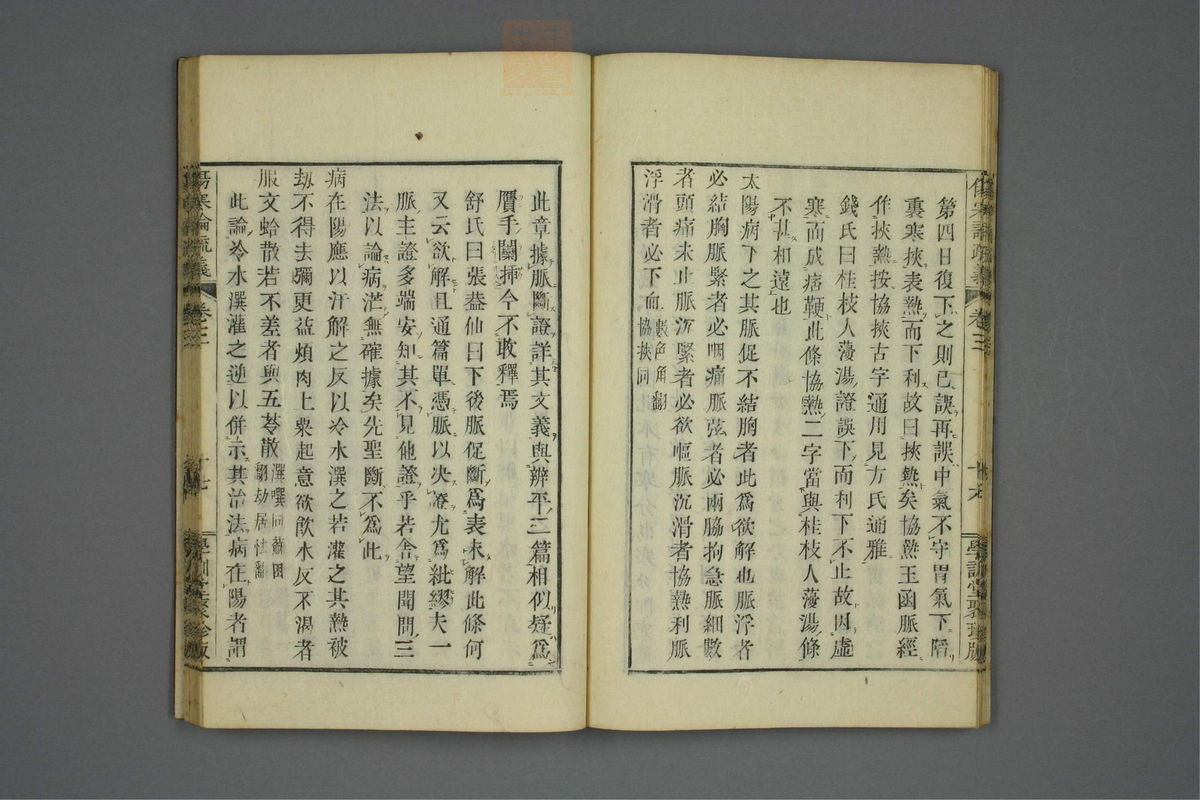 第四日復下之則已誤再誤中氣不守胃氣下陷
裏寒挾表熱而下利故曰挾熱矣協熱玉函脈經
作挾熱按協挾古字通用見方氏通雅
錢氏曰桂枝人蓡湯證誤下而利下不止故因虛
寒而成痞鞕此條協熱二字當與桂枝人蓡湯條
不甚相遠也
太陽病下之其脈促不結胸者此爲欲解也脈浮者
必結胸脈緊者必咽痛脈弦者必兩脇拘急脈細數
者頭痛未止脈沉緊者必欲嘔脈沉滑者協熱利脈
浮滑者必下血
數色角翻
協挾同
傷寒論疏義
卷三
學訓堂聚珍版
此章據脈斷證詳其文義與辨平二篇相似疑爲
贋手闌揷今不敢釋焉
舒氏曰張蓋仙曰下後脈促斷爲表未解此條何
又云欲解且通篇單憑脈以决證尤爲紕繆夫一
脈主證多端安知其不見他證乎若舍望聞問三
法以論病茫無確據矣先聖斷不爲此
病在陽應以汗解之反以冷水潠之若灌之其熱被
劫不得去彌更益煩肉上粟起意欲飮水反不渴者
服文蛤散若不差者與五苓散
潠噀同蘇困
翻劫居怯翻
此論冷水潠灌之逆以併示其治法病在陽者謂
傷寒論疏義
卷三
十七
學訓堂聚珍版